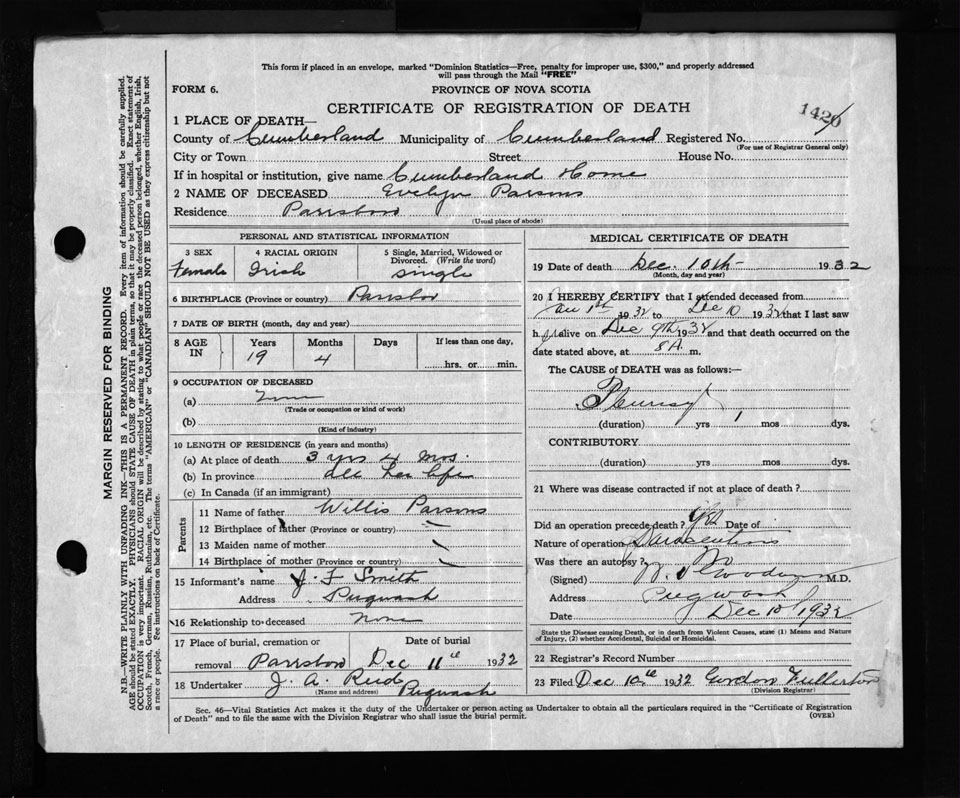 This form if placed in an envelope, marked "Dominion Statistics—Free, penalty for improper use, $300," and properly addressed
will pass through the Mail "FREE"
FORM 6.
PROVINCE OF NOVA SCOTIA
CERTIFICATE OF REGISTRATION OF DEATH
1 PLACE OF DEATH—
County of Cumberland Municipality of Cumberland Registered No.
(For use of Registrar General only)
City or Town Street House No.
If in hospital or institution, give name Cumberland Home
2 NAME OF DECEASED Evelyn Parsons
Residence Parrsboro
(Usual place of abode)
PERSONAL AND STATISTICAL INFORMATION
3 SEX 4 RACIAL ORIGIN 5 Single, Married, Widowed or
Divorced. (Write the word)
Female Irish single
6 BIRTHPLACE (Province or country) Parrsboro
7 DATE OF BIRTH (month, day and year)
8 AGE IN Years Months Days If less than one day,
19 4 hrs. or min.
9 OCCUPATION OF DECEASED
(a) None
(Trade or occupation or kind of work)
(b)
(Kind of industry)
10 LENGTH OF RESIDENCE (in years and months)
(a) At place of death 3 yrs 4 mos.
(b) In province all her life
(c) In Canada (if an immigrant)
Parents
11 Name of father Willis Parsons
12 Birthplace of father (Province or country)
13 Maiden name of mother
14 Birthplace of mother (Province or country)
15 Informant's name J. F Smith
Address Pugwash
16 Relationship to deceased None
17 Place of burial, cremation or Date of burial
removal Parrsboro Dec 11th 1932
18 Undertaker J. A. Reid
(Name and address) Pugwash
MEDICAL CERTIFICATE OF DEATH
19 Date of death Dec. 10th 1932
(Month, day and year)
20 I HEREBY CERTIFY that I attended deceased from
Jan 1st 1932 to Dec 10 1932 that I last saw
her alive on Dec 9th 1932 and that death occurred on the
date stated above, at 8 A. m.
The CAUSE of DEATH was as follows:—
Pleurisy
(duration) yrs 1 mos dys.
CONTRIBUTORY
(duration) yrs. mos. dys.
21 Where was disease contracted if not at place of death?
Did an operation precede death? Yes Date of
Nature of operation Paracentesis
Was there an autopsy? No
(Signed) M.D.
Address Pugwash
Date Dec 10 1932
State the Disease causing Death, or in death from Violent Causes, state (1) Means and Nature
of Injury, (2) whether Accidental, Suicidal or Homicidal.
22 Registrar's Record Number
23 Filed Dec 10th 1932 Gordon Fullerton
(Division Registrar)
Sec. 46—Vital Statistics Act makes it the duty of the Undertaker or person acting as Undertaker to obtain all the particulars required in the "Certificate of Registration
of Death" and to file the same with the Division Registrar who shall issue the burial permit.
(OVER)
MARGIN RESERVED FOR BINDING
N.B.—WRITE PLAINLY WITH UNFADING INK—THIS IS A PERMANENT RECORD. Every item of information should be carefully supplied.
AGE should be stated EXACTLY. PHYSICIANS should STATE CAUSE OF DEATH in plain terms, so that it may be properly classified. Exact statement of
OCCUPATION is very important. RACIAL ORIGIN will be described by stating to what people or race the deceased person belonged, whether English, Irish,
Scotch, French, German, Russian, Ruthenian, etc. The terms "AMERICAN" or "CANADIAN" SHOULD NOT BE USED as they express citizenship but not
a race or people. See instructions on back of Certificate.